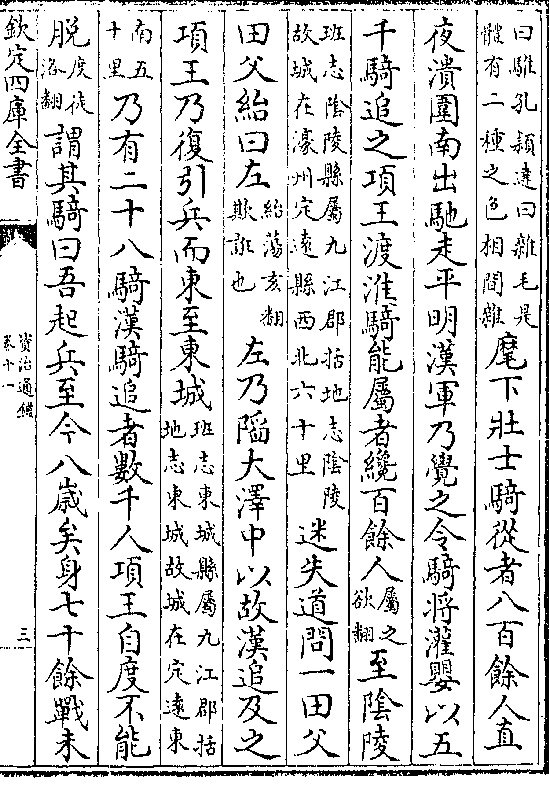 曰騅孔穎達曰雜毛是體有二種之色相間雜麾下壯士騎從者八百餘人直
夜潰圍南出馳走平明漢軍乃覺之令騎將灌嬰以五
千騎追之項王渡淮騎能屬者纔百餘人屬之欲翻至陰陵
班志陰陵縣屬九江郡括地志陰陵故城在濠州定遠縣西北六十里迷失道問一田父
田父紿曰左紿蕩亥翻欺誑也左乃陷大澤中以故漢追及之
項王乃復引兵而東至東城班志東城縣屬九江郡括地志東城故城在定遠東
南五十里乃有二十八騎漢騎追者數千人項王自度不能
脫度徒洛翻謂其騎曰吾起兵至今八歲矣身七十餘戰未
欽定四庫全書
資治通鑑
卷十一
三